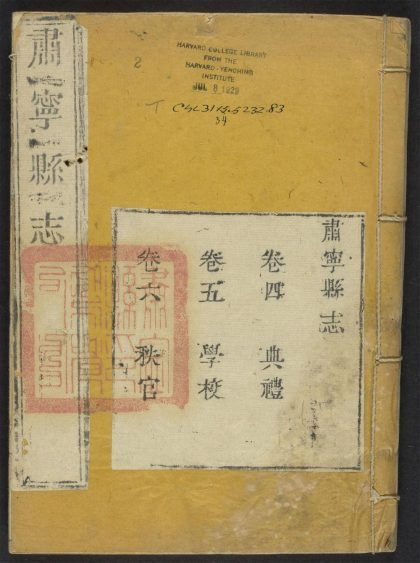 肅寧縣志
2
HARVARD COLLEGE LIBRARY
FROM THE
HARVARD-YENCHING
INSTITUTE
JUL 8 1929
T CHL 3145.5232.83
34
肅寧縣志
卷四 典禮
卷五 學校
卷六 秩官